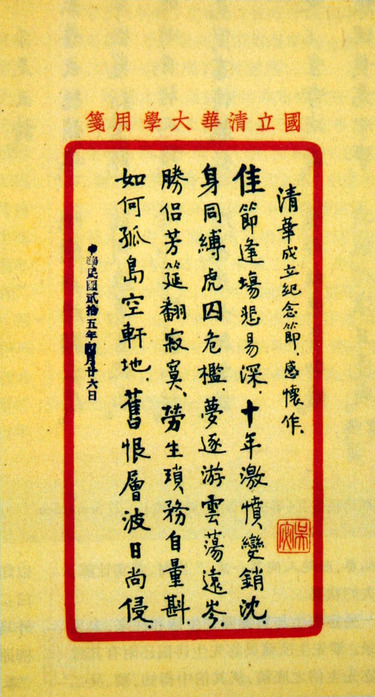 國立清華大學用箋
清華成立紀念節、感懷作、
佳節逢塲悲易深、十年激憤變銷沈、
身同縛虎囚危檻夢逐游雲蕩遠岑
勝侶芳筵翻寂寞、勞生瑣務自量斟、
如何孤島空軒地、舊恨層波日尚侵、
中華民國貳拾五年四月廿六日
吳宓